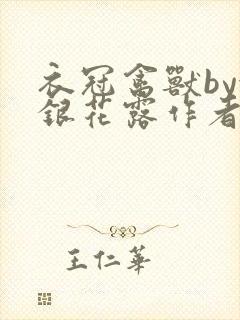 衣冠禽獸by
銀花露作者
王仁華